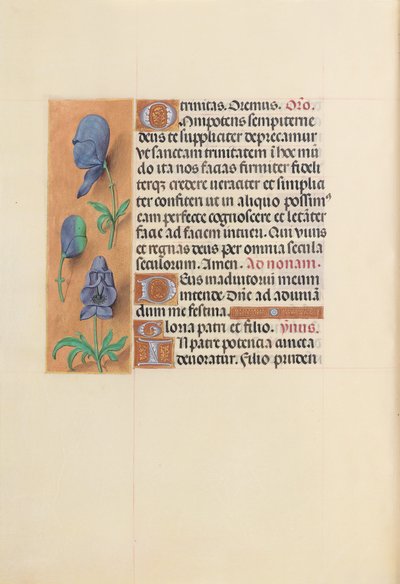 trinitas. Oremus. Oro.
Omnipotens sempiterne
deus te suppliciter deprecamur
ut sanctam trinitatem i hoc mū
do ita nos facias firmiter fideli
terq; credere ueraciter et simplici
ter confiteri ut in aliquo possimꝰ
eam perfecte cognoscere et letāter
facie ad faciem intueri. Qui viuis
et regnas deus per omnia secula
seculorum. Amen. Ad nonam.
Deus in adiutorium meum
intende. Dn̄e ad adiuuā
dum me festina.
Gloria patri et filio. ymnus.
In patre potencia cuncta
deuoratur. Filio pruden